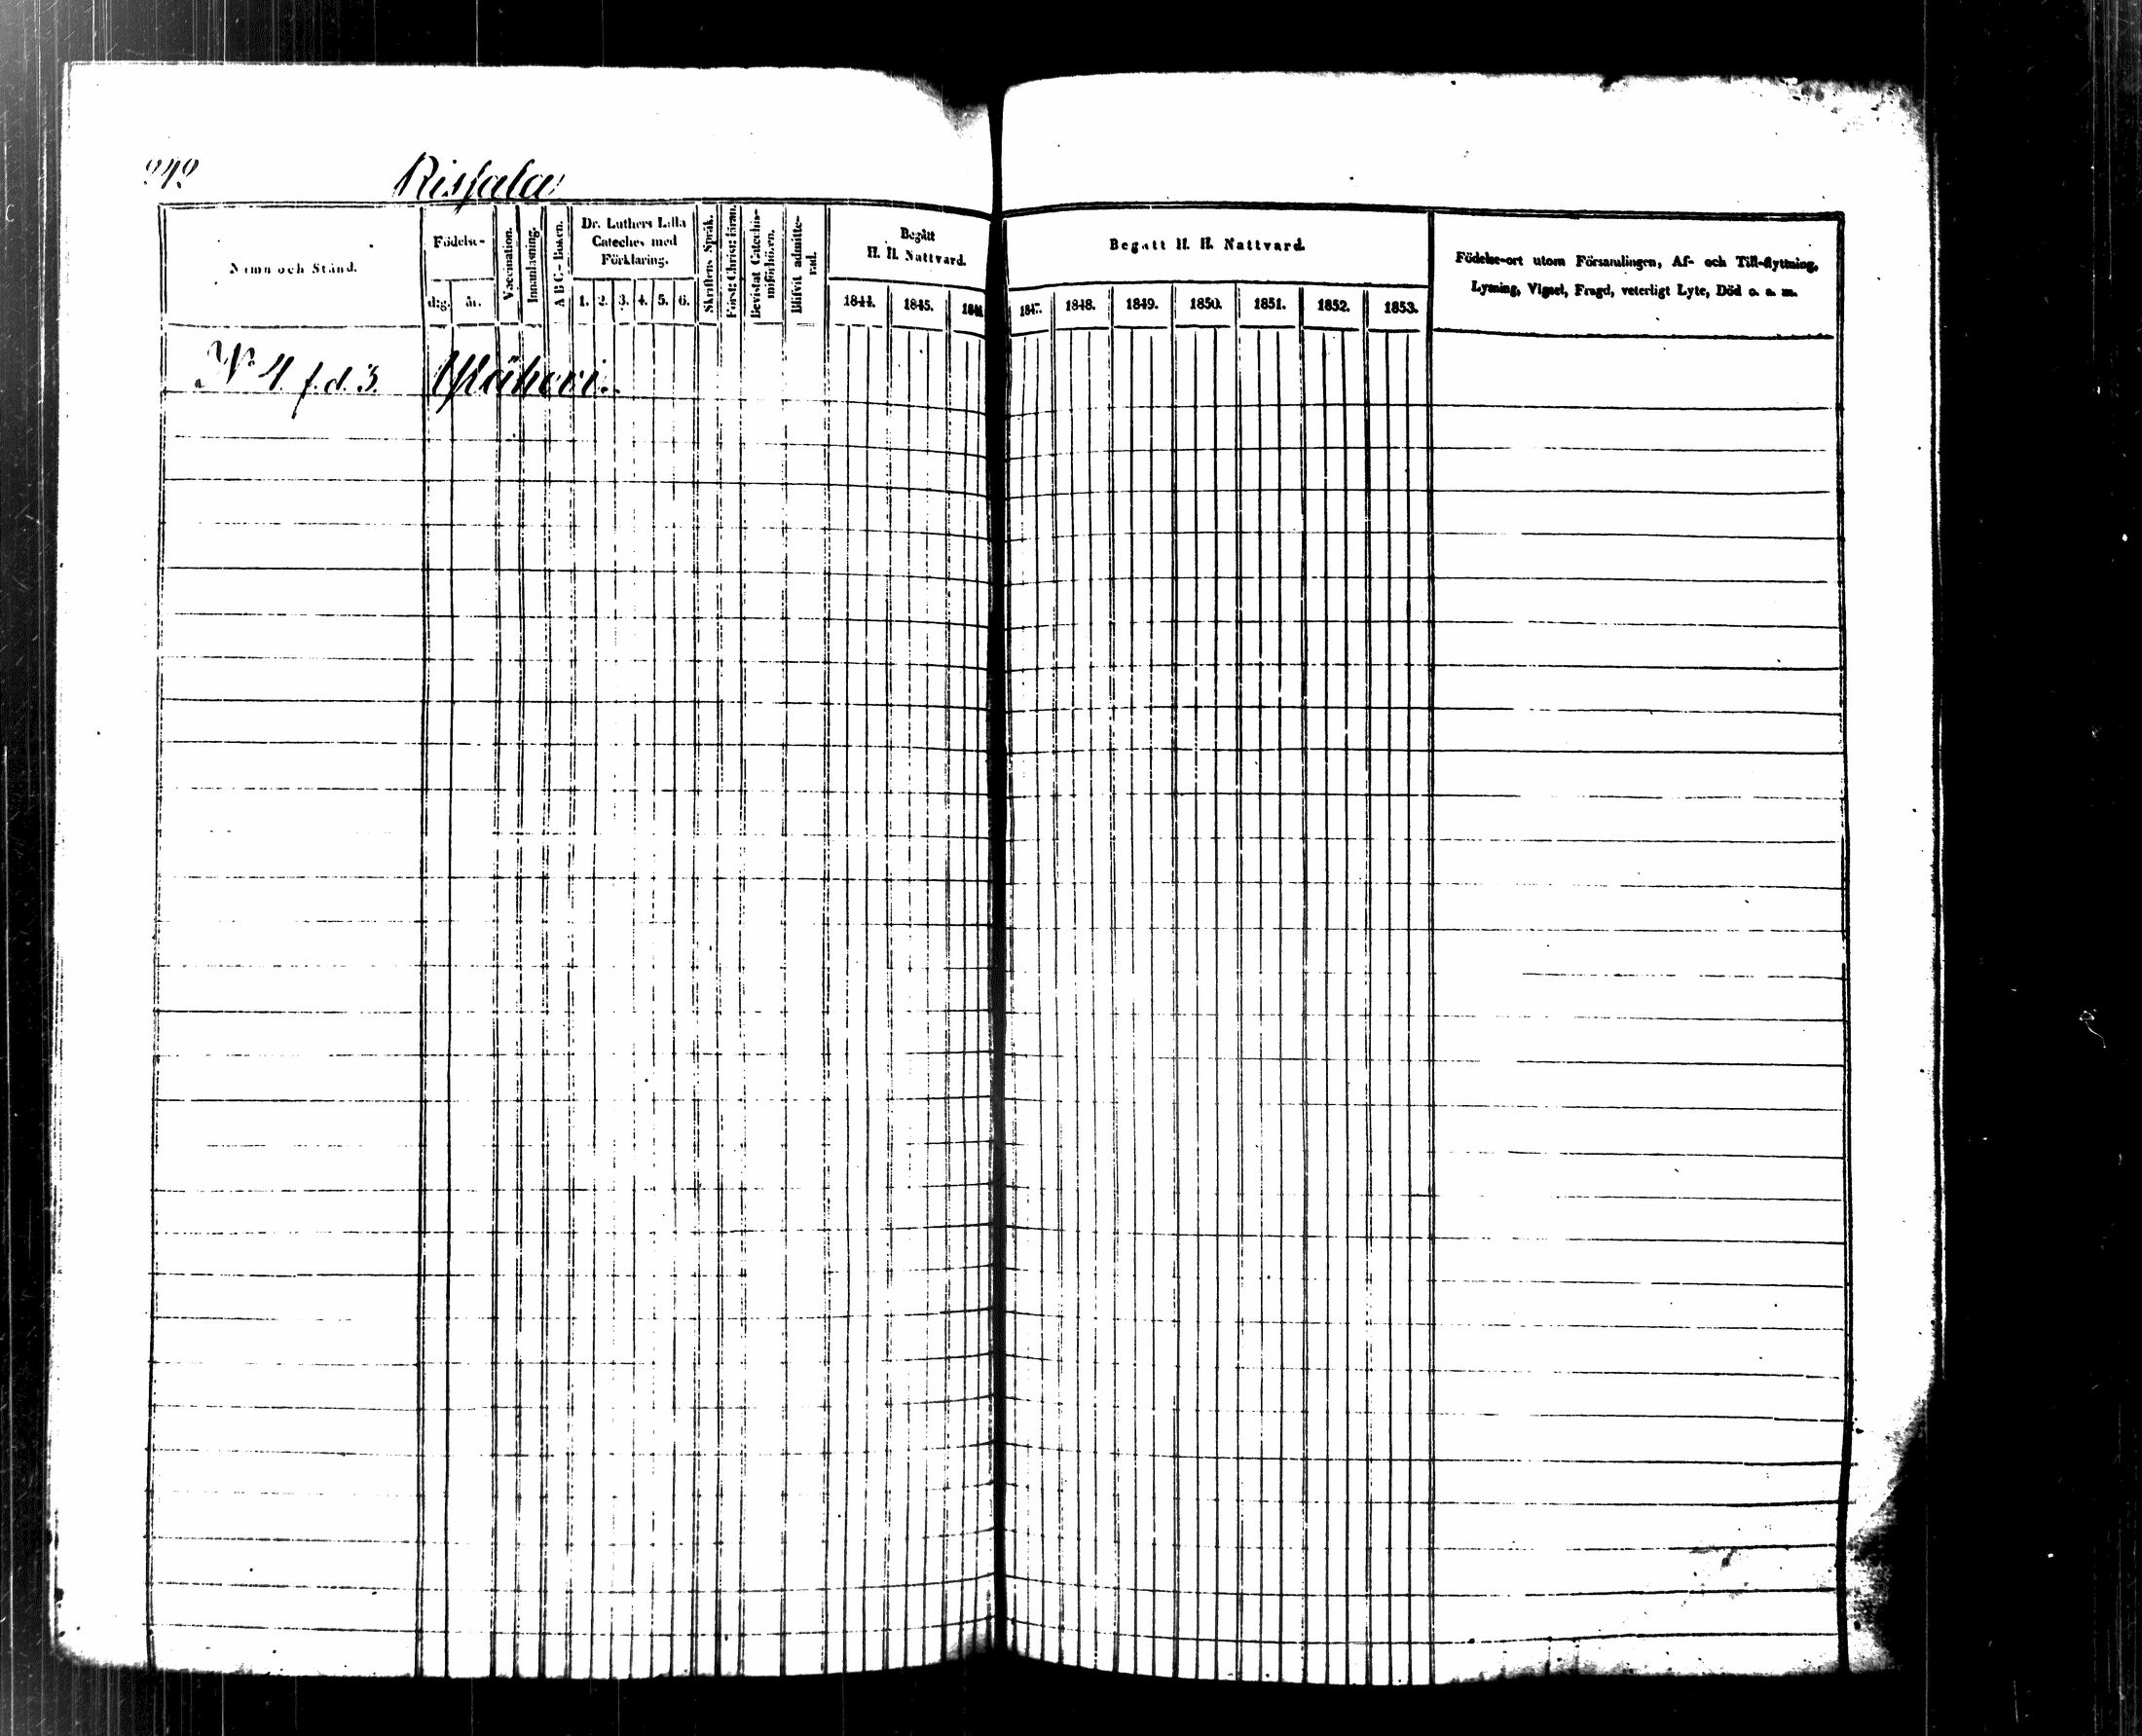 242
Rissala
Namn och Stånd.
Födelse-
dig. år.
Vaccination.
Innanläsning.
A B C-Boken.
Dr. Luthers Lilla
Cateches med
Förklaring.
1. 2. 3. 4. 5. 6.
Skriftens Språk.
Först: Christ: läran.
Bevistat Catechis-
miförhören.
Blifvit admitte-
rad.
Begått
H. H. Nattvard.
1844. 1845. 1846
Begått H. H. Nattvard.
1847. 1848. 1849. 1850. 1851. 1852. 1853.
Födelse-ort utom Församlingen, Af- och Till-flyttning,
Lysning, Vigsel, Frägd, veterligt Lyte, Död o. s. m.
No 4 f.d. 3.